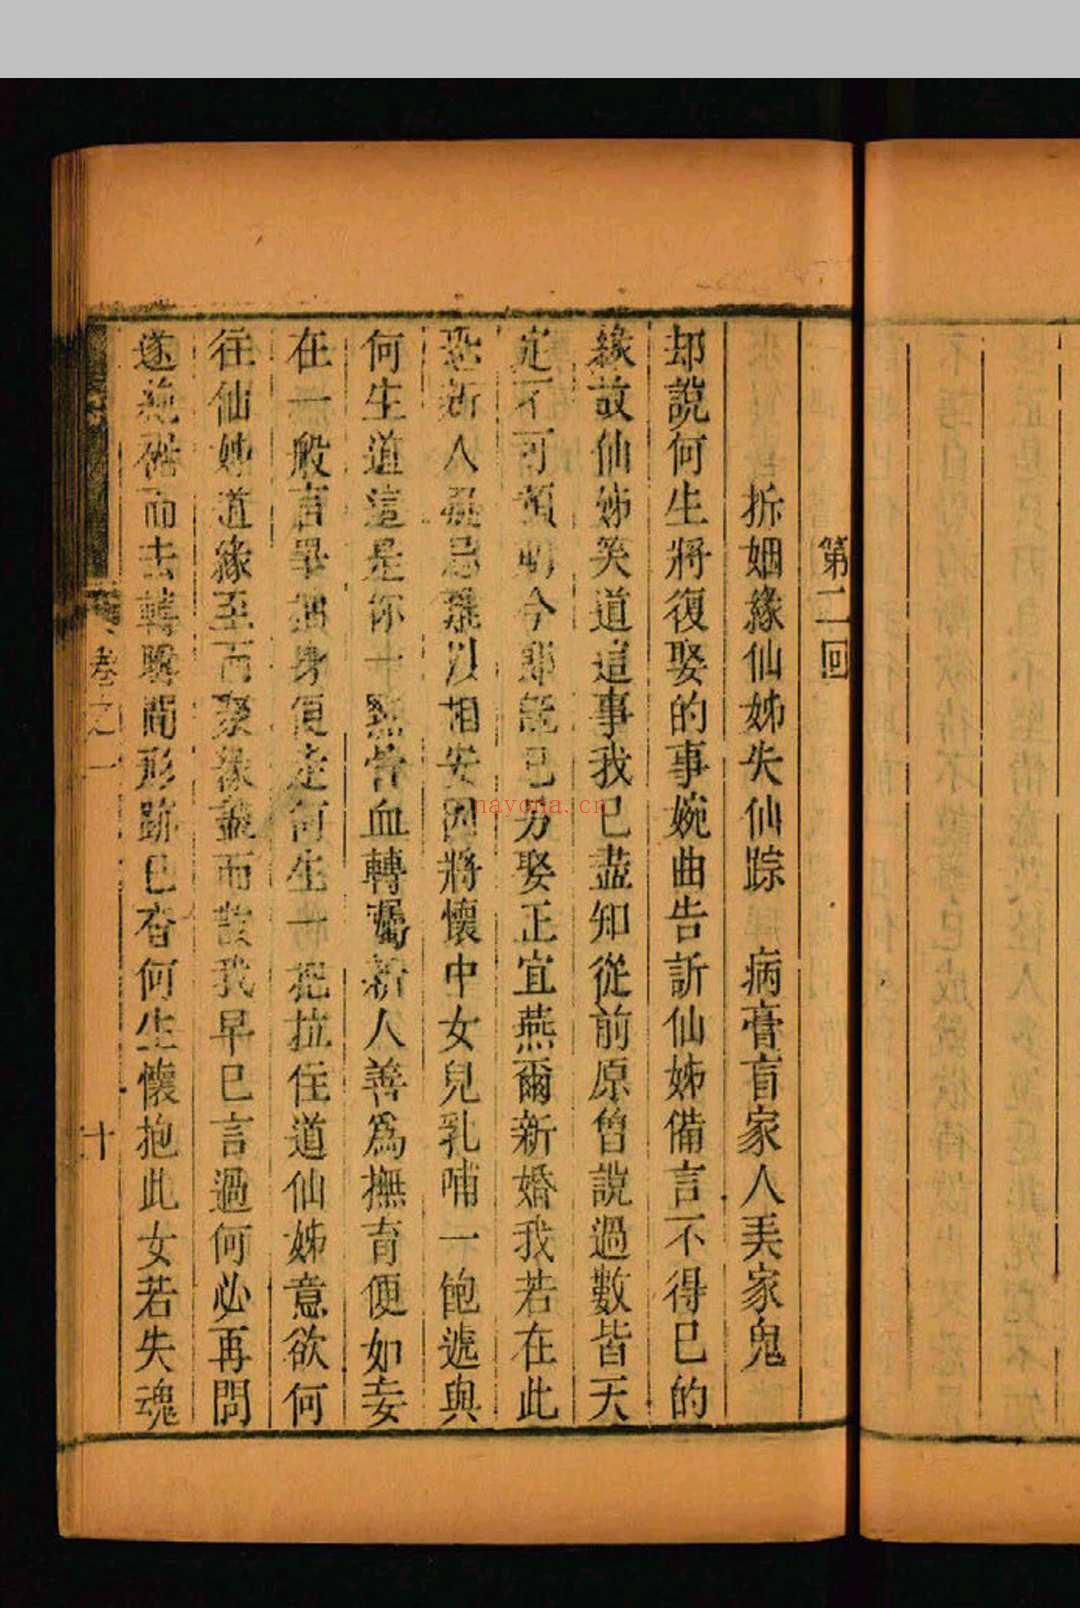 第二回
拆姻緣仙姊失仙踪　病膏盲家人丟家鬼
却說何生將復娶的事婉曲告訴仙姊備言不得已的
緣故仙姊笑道這事我已盡知從前原曾說過數皆天
定不可預明今郎旣已另娶正宜燕爾新婚我若在此
恐新人疑忌難以相安因將懷中女兒乳哺一飽遞與
何生道這是你一點骨血轉囑新人善爲撫育便如妾
在一般言畢抽身便走何生一把拉住道仙姊意欲何
往仙姊道緣至而聚緣盡而散我早已言過何必再問
遂
而去轉瞬間形跡已杳何生懷抱此女若失魂
卷之一
十
nayona.cn